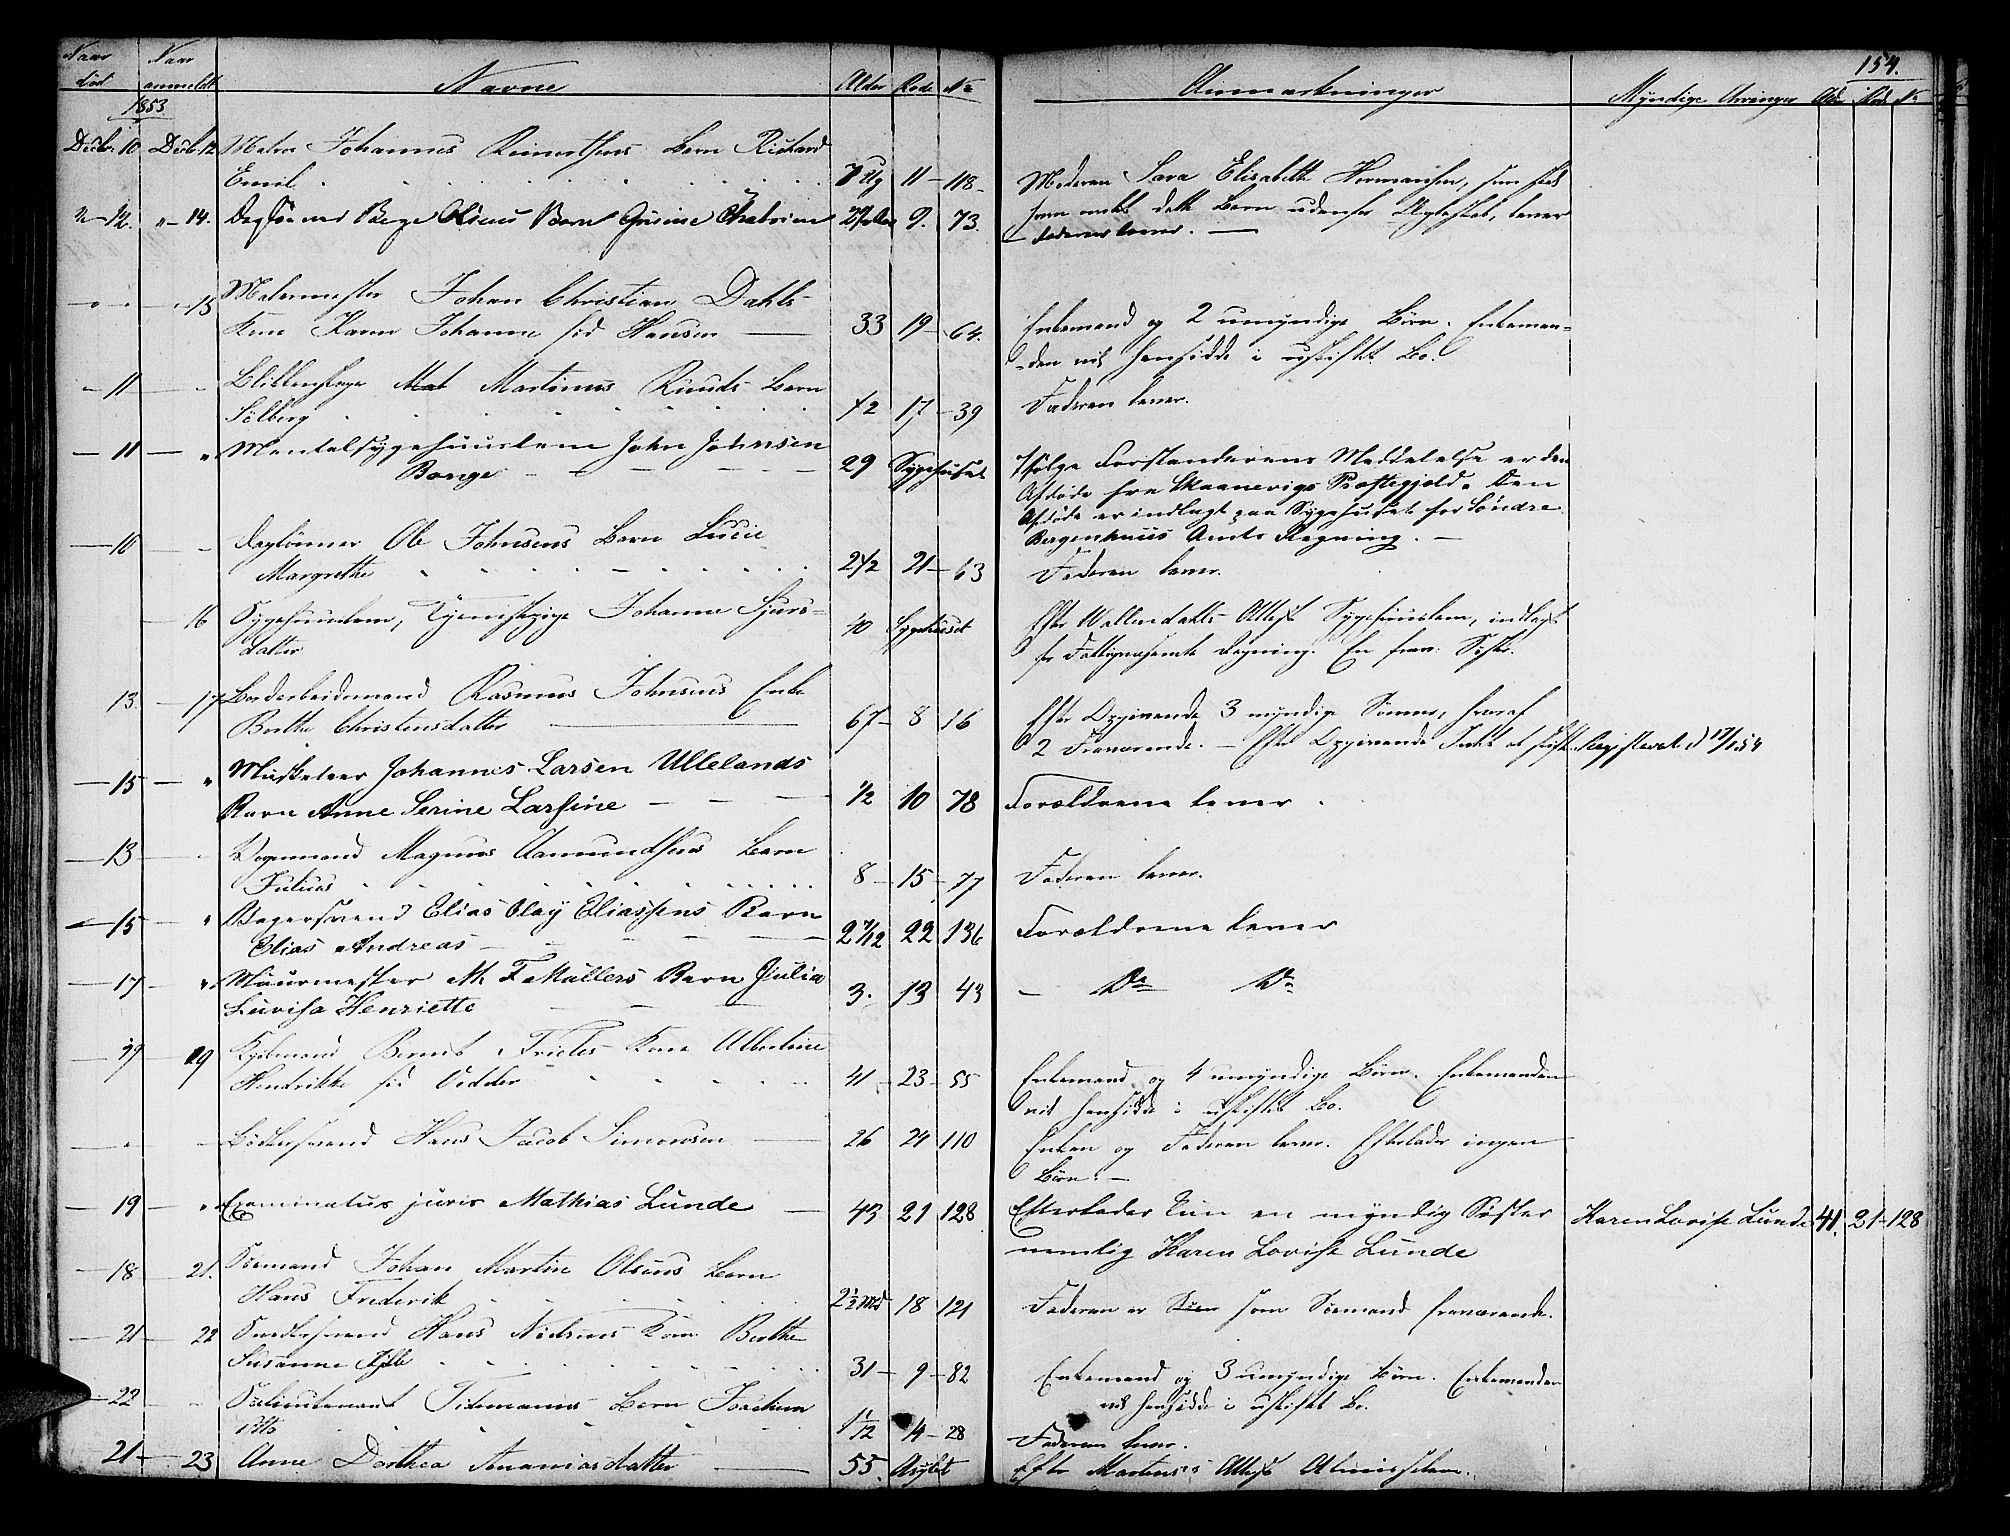 154.
Naar død
Naar anmeldt
Navne
Alder Rode No
Anmærkninger
Myndige Arvinger Ald. Rod. No
1853
Decbr. 10 Decbr. 12 Matros Johannes Reinertsens Barn Richard
Emil 7 Ug 11 - 118
Moderen Sara Elisabeth Hermansen, som
dette Barn udenfor Ægteskab, lever
Faderen lever.
12. 14. Daglønner Berge Olsens Barn Gusine Chatrine 9. 73.
15 Malermester Johan Christian Dahls
Kone Karen Johanne fød Hansen 33 19 - 64.
Enkemand og 2 umyndige Børn. Enkeman-
den vil hensidde i uskiftet Bo.
11 Blikkenslager Martinus Ruuds Barn
Sølberg 1/2 17 - 39
Faderen lever.
11 Mentalsygehuuslem John Johnsen
Borge 29 Sygehuset
Ifølge Forstanderens Meddelelse er den
Afdøde fra Skaanevigs Præstegjeld. Den
Afdøde er indlagt paa Sygehuset for Søndre
Bergenhuus Amts Regning.
10 Daglønner Ole Johnsens Barn Lucie
Margrethe 2 1/2 21 - 63
Faderen lever.
16 Sygehuuslem, Tjenestepige Johanne Sjurs-
datter 40 Sygehuset
Efter Wallendahls Attest Sygehuuslem, indlagt
for Fattigvæsenets Regning. En frav. Søster.
13. 17 Borderbeidsmand Rasmus Johnsens Enke
Berthe Christensdatter 67 - 8 16
Efter Opgivende 3 myndige Sønner, hvoraf
2 Fraværende. - Efter Opgivende Intet at skifte. Registeret d
15 Musketeer Johannes Larsen Ullelands
Barn Anne Serine Larsine 1/2 10 78
Forældrene lever.
13 Vognmand Magnus Aamundsens Barn
Julius 8 - 15 - 77
Faderen lever.
15 Bagersvend Elias Olay Eliassens Barn
Elias Andreas 2 7/12 22 136
Forældrene lever
17 Muurmester M. F. Müllers Barn Julia
Luvisa Henriette 3. 13 43
Do Do
19 19 Kjøbmand Bernt Frieles Kone Albertine
Hendrikke fød Vedder 41 - 23 - 55
Enkemand og 4 umyndige Børn. Enkemanden
vil hensidde i uskiftet Bo.
Bødkersvend Hans Jacob Simonsen 26 24 110
Enken og Faderen lever. Efterlader ingen
Børn. -
19 Examinatus juris Mathias Lunde 43 21 128
Efterlader kun en myndig Søster Karen Lovise Lunde 41. 21 - 128
nemlig Karen Lovise Lunde
18 21. Sømand Johan Martin Olsens Barn
Hans Frederik 2 1/2 Md 18 121
Faderen er som Sømand fraværende.
21 22 Snedkersvend Hans Nielsens Kone Berthe
Susanne 31 - 9 - 82
Enkemand og 3 umyndige Børn. Enkemanden
vil hensidde i uskiftet Bo.
22 Sølieutenant Tidemanns Barn Joachim
Otto 1 1/12 4 - 28
Faderen lever.
21 - 23 Anne Dorthea Ananiasdatter 55. Asylet
Efter Martens's Attest Almisselem.